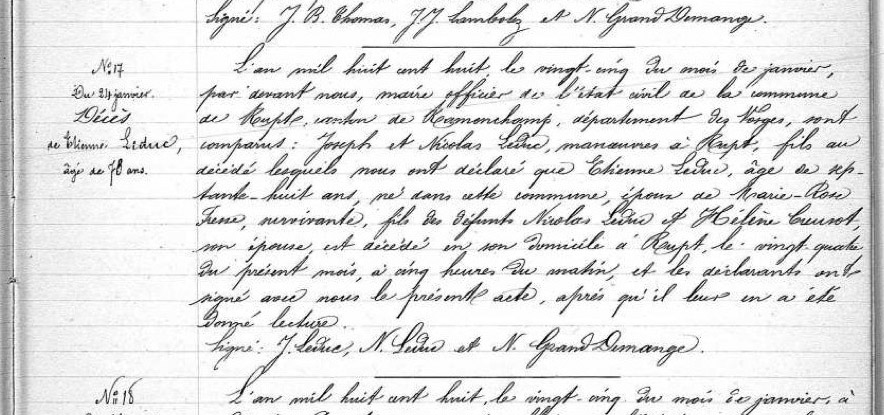 Signé: J. B. Thomas, J. J. Lambolez et N. Grand Demange.
N° 17
Du 24 janvier.
Décès
de Etienne Leduc,
âgé de 78 ans.
L'an mil huit cent huit, le vingt-cinq du mois de janvier,
par devant nous, maire officier de l'état civil de la commune
de Rupt, canton de Ramonchamp, département des Vosges, sont
comparus: Joseph et Nicolas Leduc, manœuvres à Rupt, fils au
décédé lesquels nous ont déclaré que Etienne Leduc, âge de sep-
tante-huit ans, né dans cette commune, époux de Marie-Rose
Fresse, survivante, fils des défunts Nicolas Leduc et Hélène Creusot,
son épouse, est décédé en son domicile à Rupt, le vingt-quatre
du présent mois, à cinq heures du matin, et les déclarants ont
signé avec nous le présent acte, après qu'il leur en a été
donné lecture.
Signé: J. Leduc, N. Leduc et N. Grand Demange.
N° 18
L'an mil huit cent huit, le vingt-cinq du mois de janvier, à